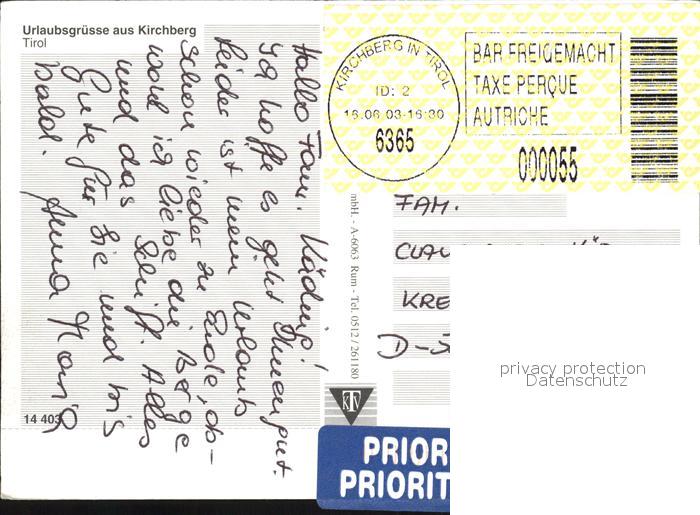 Urlaubsgrüsse aus Kirchberg
Tirol
Hallo Fam. Kädrig!
Ich hoffe es geht Ihnen gut.
Leider ist mein Urlaub
schon wieder zu Ende, ob-
wohl ich liebe die Berge
und das Schiff. Alles
Gute für Sie und bis
bald. Anna Maria
14 403
KIRCHBERG IN TIROL
ID: 2
16.06.03-16:30
6365
BAR FREIGEMACHT
TAXE PERÇUE
AUTRICHE
000055
mbH. - A-6063 Rum - Tel. 0512 / 261180
KTV
FAM.
CLAU
KRE
D-5
PRIOR
PRIORIT
privacy protection
Datenschutz